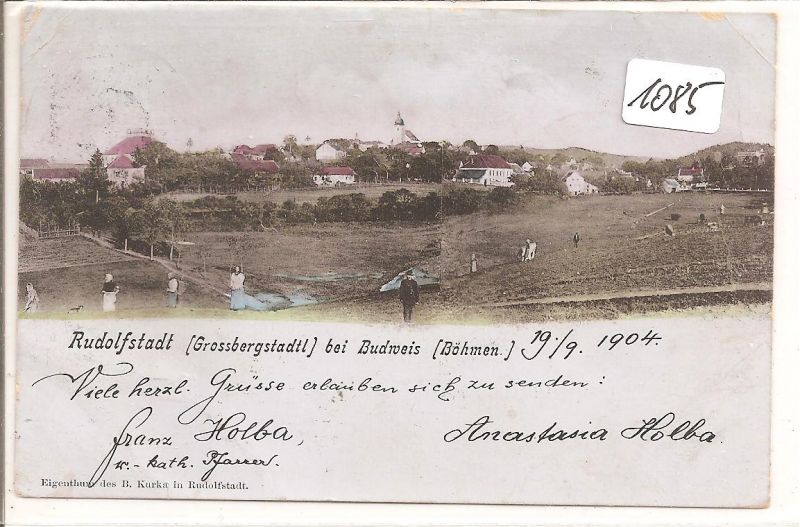 1085
Rudolfstadt [Grossbergstadtl] bei Budweis [Böhmen.] 19./9. 1904.
Viele herzl. Grüsse erlauben sich zu senden:
Franz Holba, Anastasia Holba.
r.-kath. Pfarrer.
Eigenthum des B. Kurka in Rudolfstadt.